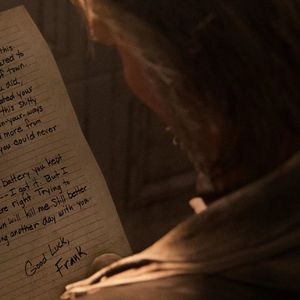 this
to
of town
did,
your
this shitty
-your-ways
more from
you could never
battery you kept
-- I got it. But I
right. Trying to
will kill me. Still better
another day with you
Good Luck,
Frank